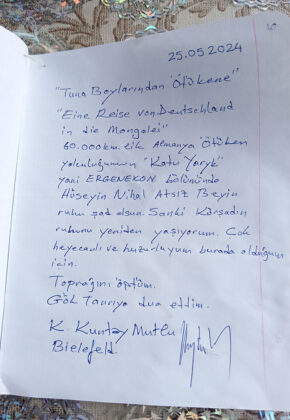 25.05.2024
"Tuna Boylarından Ötükene"
"Eine Reise von Deutschland
in die Mongolei"
60.000 km. lik Almanya Ötüken
yolculuğumun "Katu Yaryk"
yani ERGENEKON bölümünde
Hüseyin Nihal Atsız Beyin
ruhu şad olsun. Sanki Kürşadın
ruhunu yeniden yaşıyorum. Çok
heyecanlı ve huzurluyum burada olduğum
için.
Toprağını öptüm.
Gök Tanrıya dua ettim.
K. Kuntay Mutlu
Bielefeld